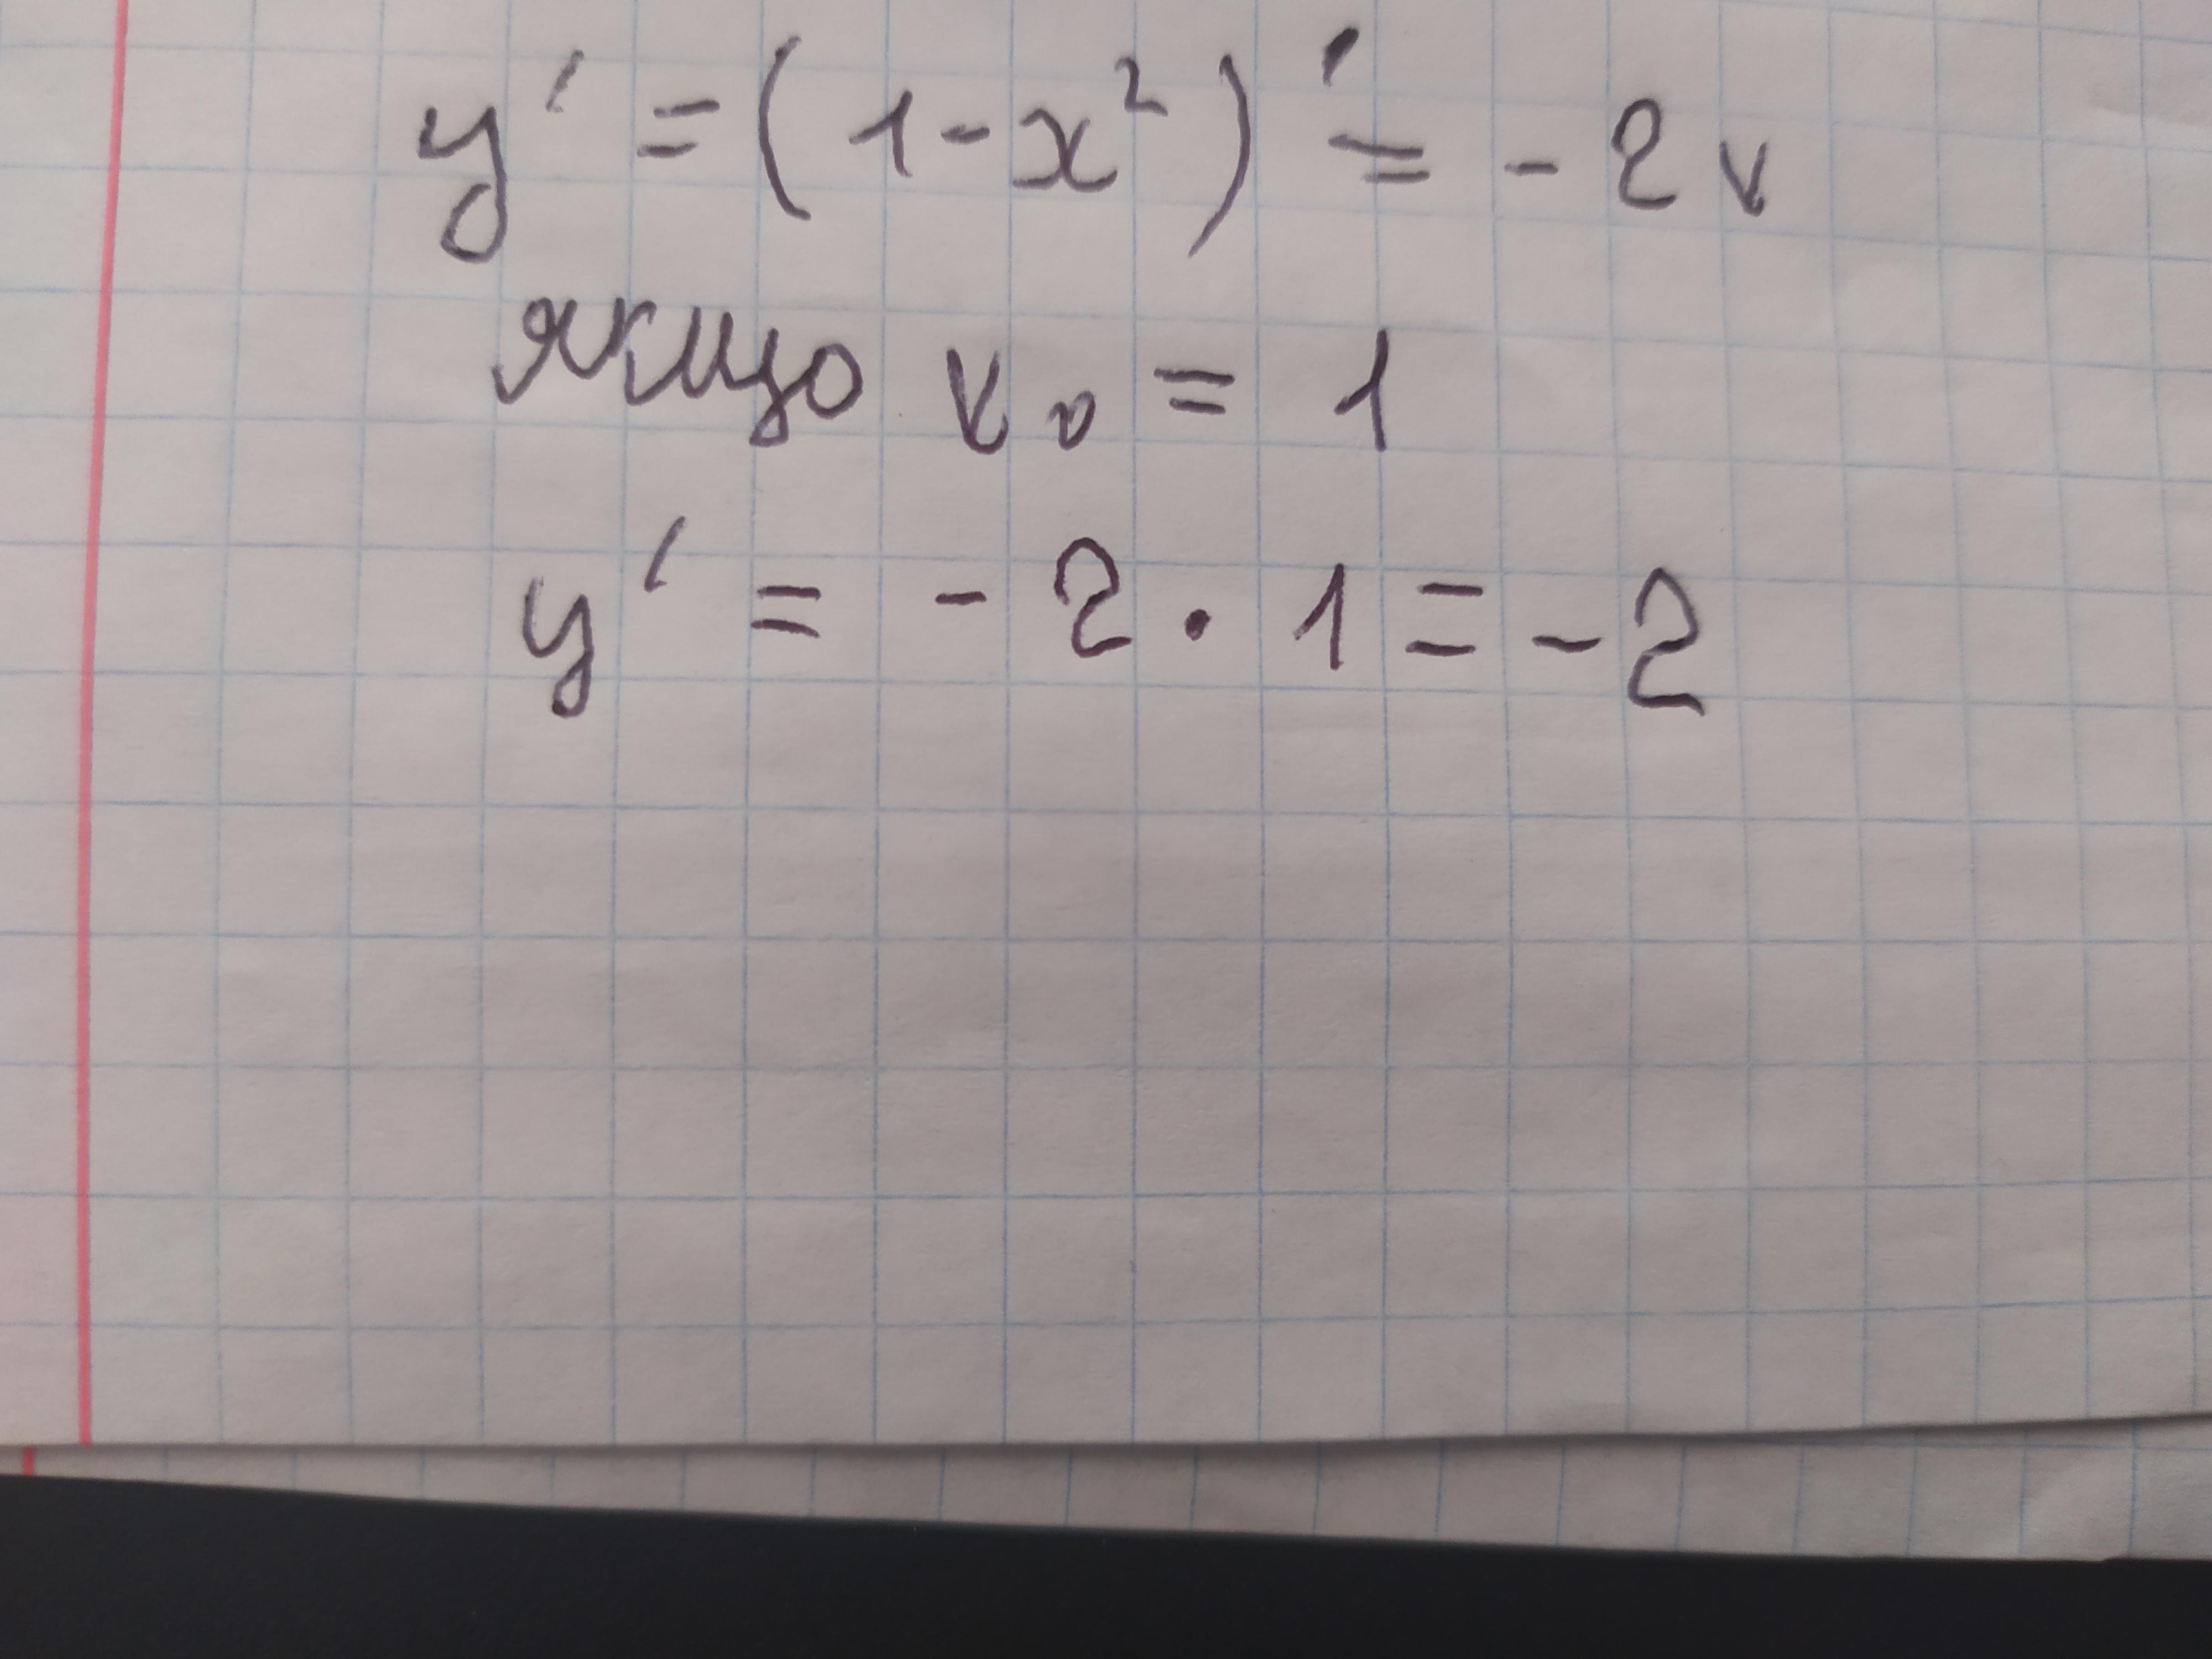 y' = (1 - x²)' = - 2v
якщо v₀ = 1
y' = - 2 · 1 = - 2